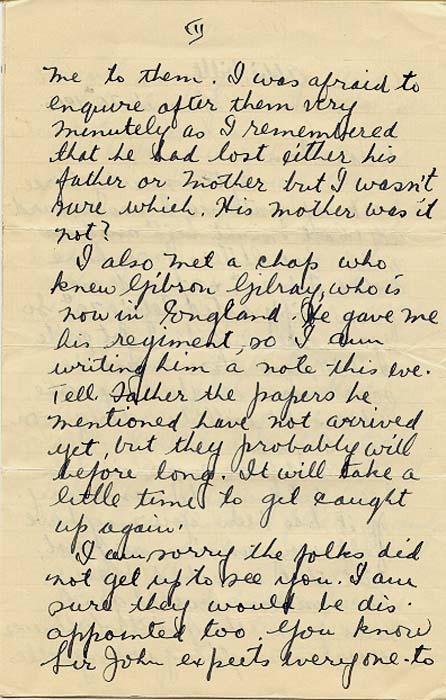 III
me to them. I was afraid to
enquire after them very
minutely as I remembered
that he had lost either his
father or mother but I wasn't
sure which. His mother was it
not?
I also met a chap who
knew Gibson Gilray, who is
now in England. He gave me
his regiment, so I am
writing him a note this eve.
Tell Father the papers he
mentioned have not arrived
yet, but they probably will
before long. It will take a
little time to get caught
up again.
I am sorry the folks did
not get up to see you. I am
sure they would be dis-
appointed too. You know
Sir John expects everyone to